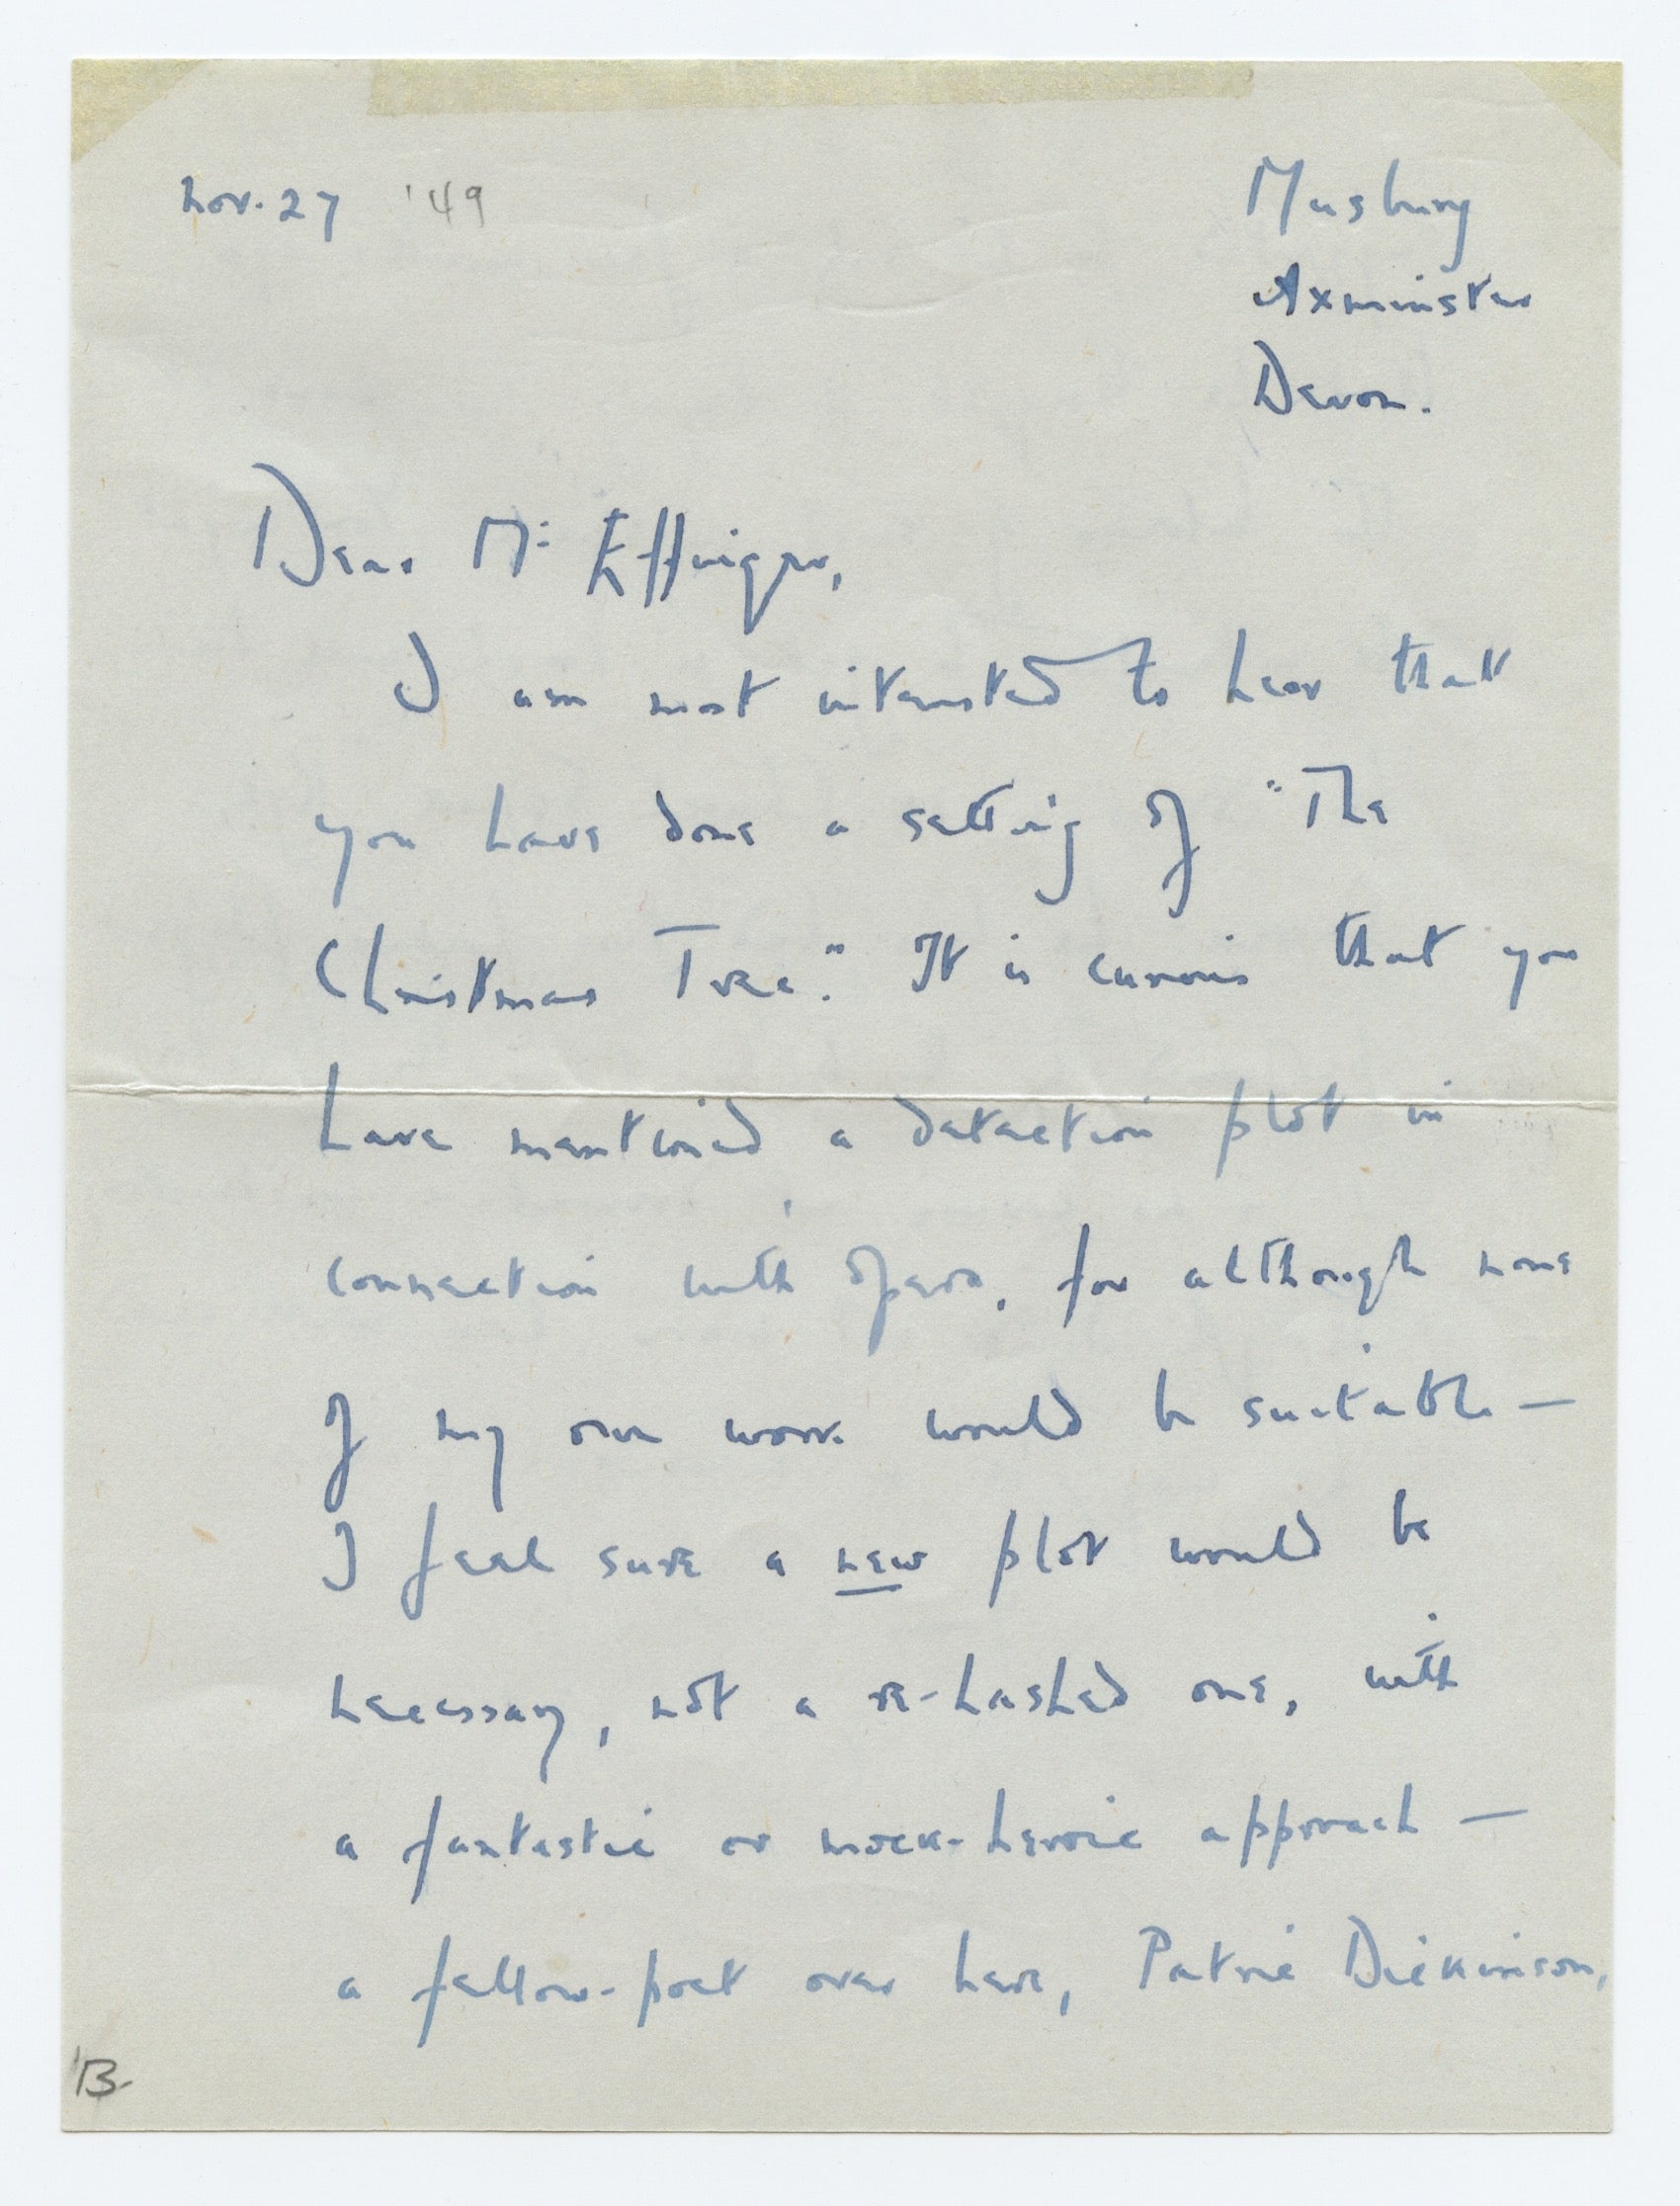 Nov. 27 '49
Musbury
Axminster
Devon.
Dear Mr Effinger,
I am most interested to hear that
you have done a setting of "The
Christmas Tree". It is curious that you
have mentioned a detection plot in
connection with opera, for although none
of my own work would be suitable —
I feel sure a new plot would be
necessary, not a re-hashed one, with
a fantastic or mock-heroic approach —
a fellow-poet over here, Patric Dickinson,
B-